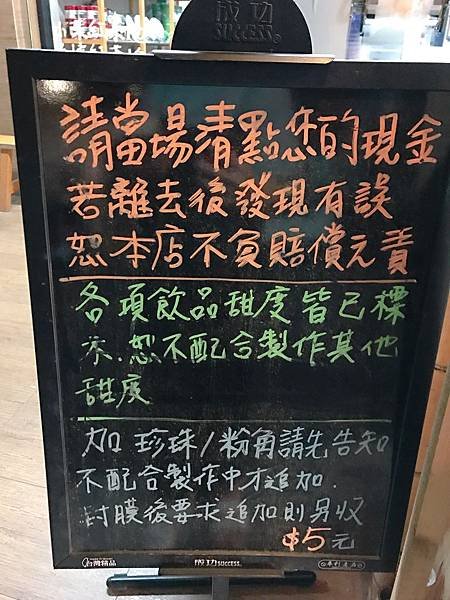 成功
SUCCESS®
請當場清點您的現金
若離去後發現有誤
恕本店不負賠償元責
各項飲品甜度皆已標
示.恕不配合製作其他
甜度
加珍珠/粉角請先告知
不配合製作中才追加.
封膜後要求追加則另收
$5元
台灣精品
成功 SUCCESS®
專利產品